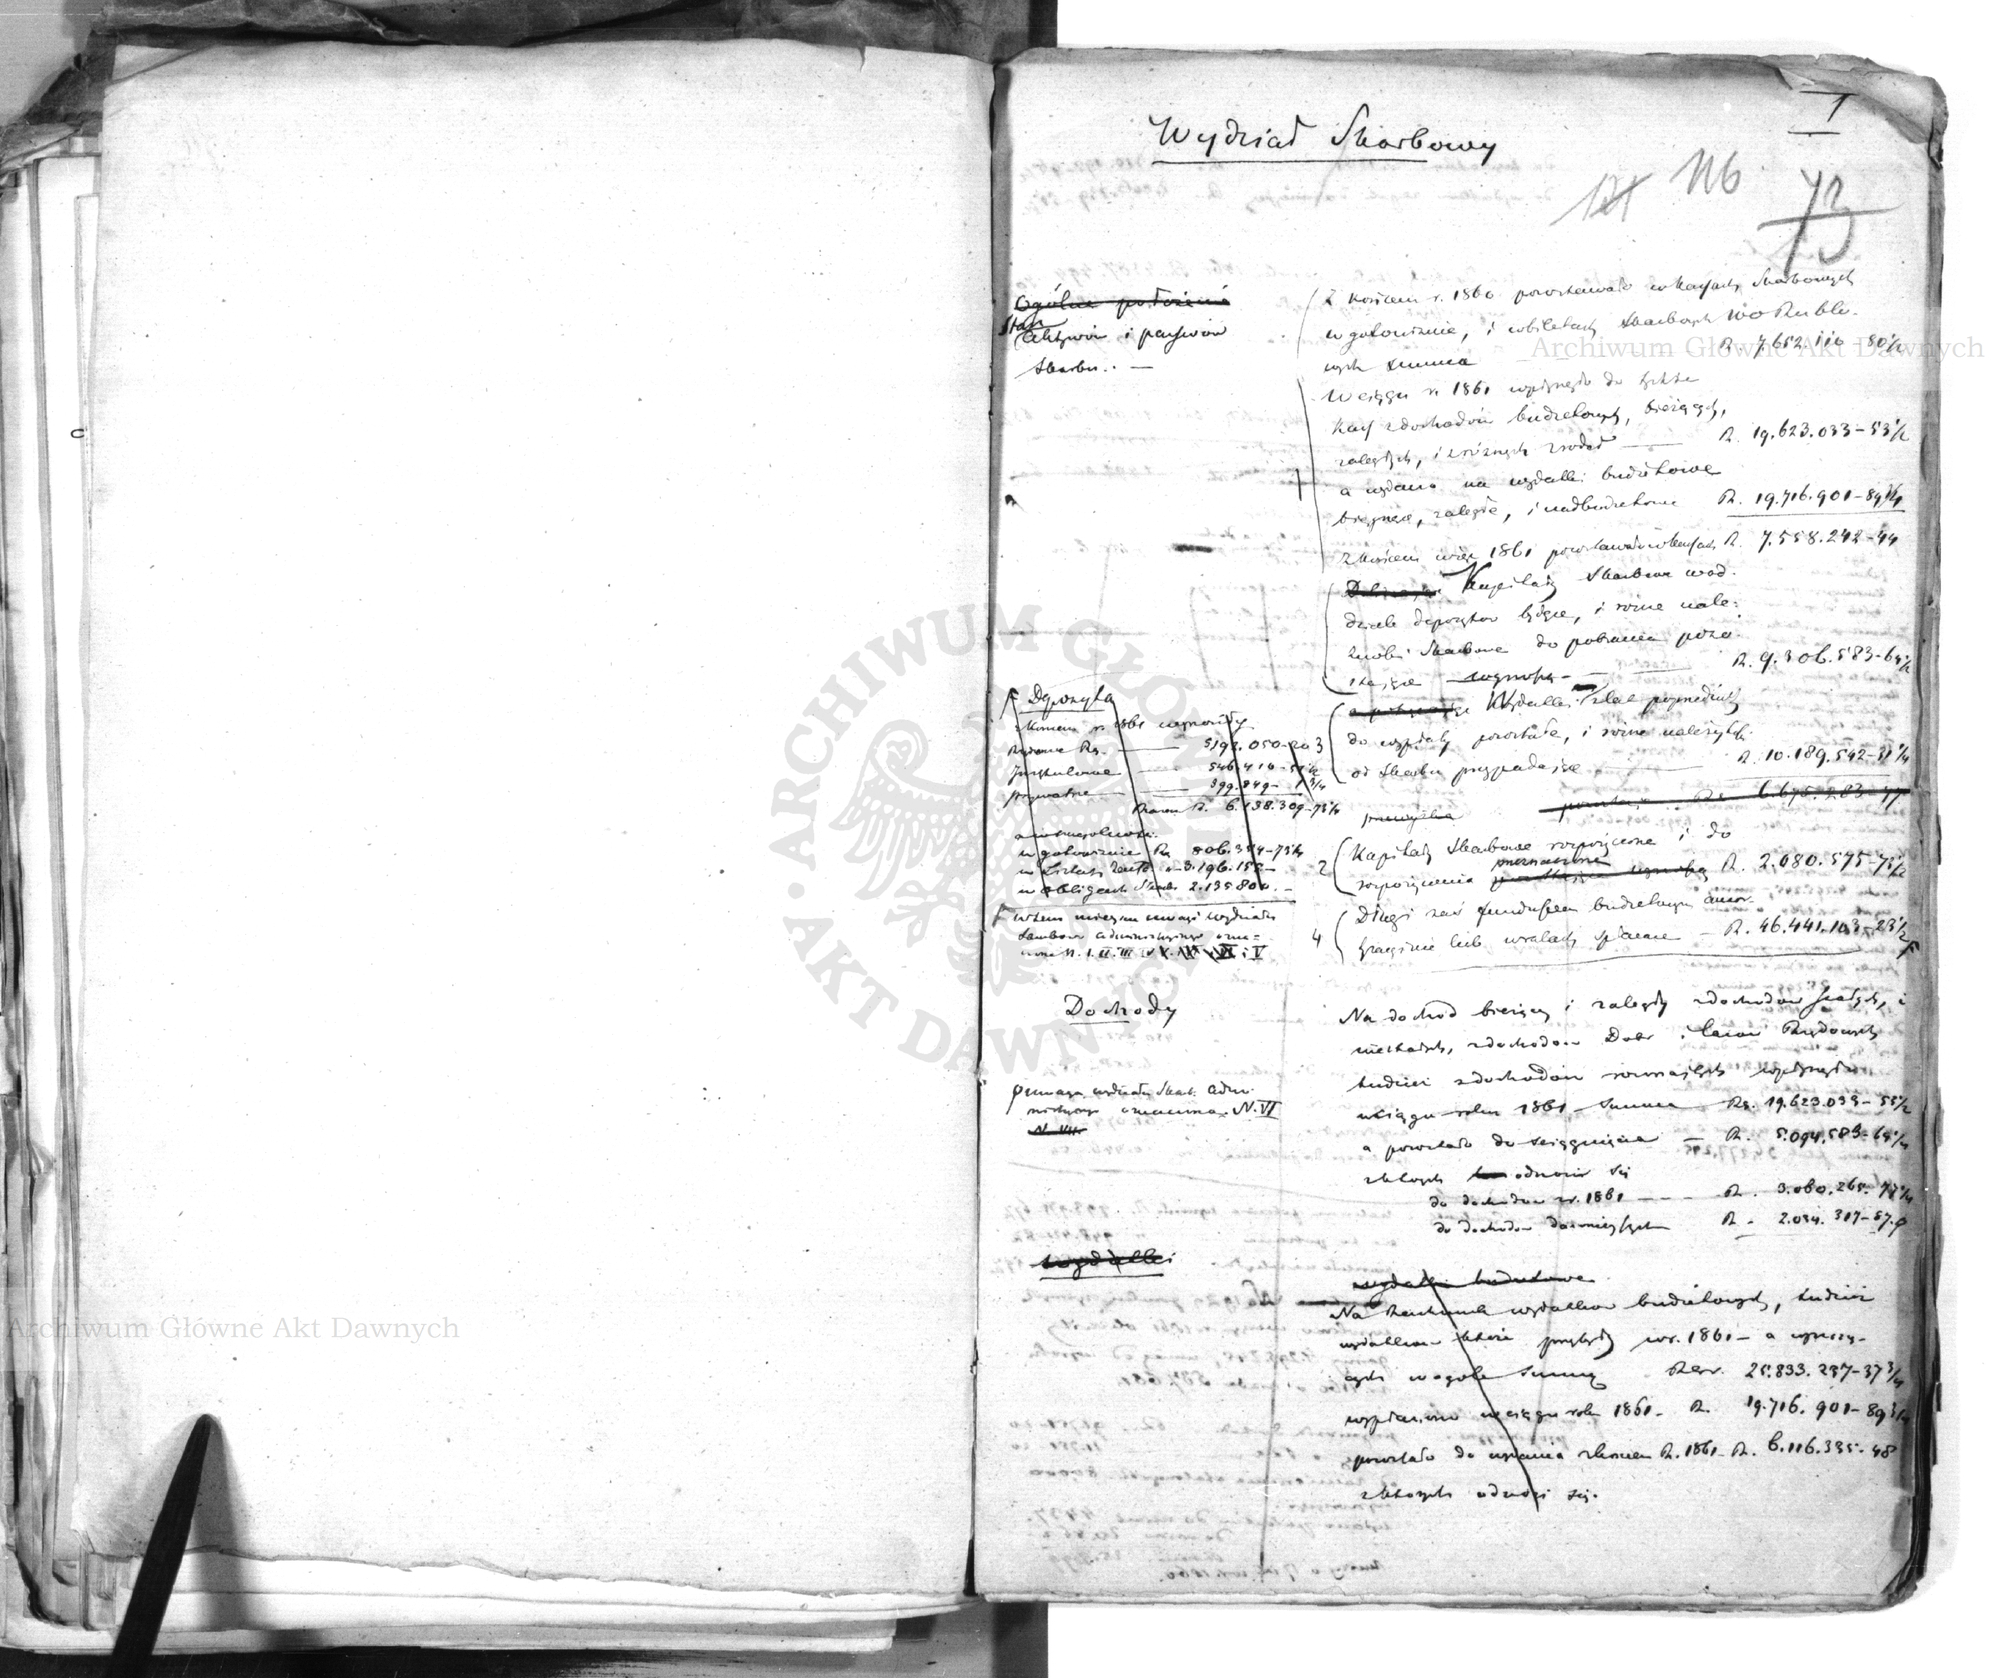 1
Wydział Skarbowy
121 116 73
Ogólne położenie
Stan
Aktywów i passywów
Skarbu.. —
Z końcem r. 1860 pozostawało w kassach Skarbowych
w gotowiznie, i w biletach skarbowych
wych summa R. 7.652.110-80½
W ciągu r. 1861 wpłynęło do tychże
Kass z dochodów budżetowych, bieżących,
zaległych, i z różnych źródeł — R. 19.623.033-53½
a wydano na wydatki budżetowe
bieżące, zaległe, i nadbudżetowe R. 19.716.901-89¾
z końcem więc 1861 pozostawało w kassach R. 7.558.242-44
Kapitały Skarbowe w od-
dziale depozytów będące, i różne nale-
do pobrania pozo-
stające — wynoszą — R. 9.306.583-64½
Wydatki
do wypłaty pozostałe, i różne należytości
od Skarbu przypadające — R. 10.189.542-31¼
R. 6.675.283-77
Depozyta
z końcem r. 1861 wynosiły
Rządowe Rs. — 5192.050-20
Instytutowe — 546.410-
prywatne — 399.849-1¾
Razem R. 6.138.309-73¼
a w szczególności:
w gotowiznie Rs 806.354-73¼
w Listach Zast. — 3.196.155-
w obligach Skarb. 2.135.800.-
3
2
Kapitały Skarbowe rozpożyczone i do
rozpożyczenia przeznaczone R. 2.080.575-73½
4
Długi zaś funduszem budżetowym amor-
tyzacyjnie lub w ratach spłacane — R. 46.441.103-23½
w tem miejscu uwagi wydziału
Skarbowo administracyjnego ozna-
czone N. I. II. III
Dochody
Na dochód bieżący i zaległy z dochodów stałych, i
niestałych, z dochodów Dóbr i Lasów Rządowych
tudzież z dochodów wpłynęło
w ciągu roku 1861 — Summa Rs. 19.623.033-53½
a pozostało do ściągnięcia — R. 5.094.583-64¼
z których odnosi się
do dochodów z r. 1861 — R. 3.060.265.77¼
do dochodów dawniejszych R. 2.034.317-87.
uwaga wydziału Skarb. Admi-
nistracyj. oznaczona N. VI
N. VII
wydatki
wydatki budżetowe
Na Rachunek wydatków budżetowych, tudzież
wydatków które przybyły w r. 1861 — a wynoszą-
cych w ogóle Summę Rsr. 25.833.237-37¾
wypłacono w ciągu roku 1861 — R. 19.716.901-89¾
pozostało do wydania z końcem R. 1861 — R. 6.116.335.48
z których odnosi się.
Archiwum Główne Akt Dawnych
Archiwum Główne Akt Dawnych
ARCHIWUM GŁÓWNE AKT DAWNYCH